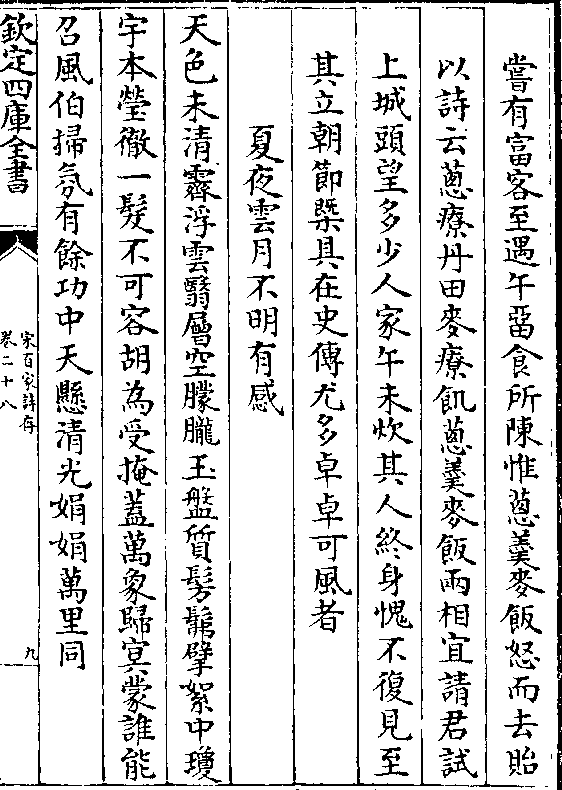 嘗有富客至遇午留食所陳惟蔥羹麥飯怒而去貽
以詩云蔥療丹田麥療飢蔥羹麥飯兩相宜請君試
上城頭望多少人家午未炊其人終身愧不復見至
其立朝節槩具在史傳尤多卓卓可風者
夏夜雲月不明有感
天色未清霽浮雲翳層空朦朧玉盤質髣髴擘絮中瓊
宇本瑩徹一髮不可容胡為受掩蓋萬象歸冥蒙誰能
召風伯掃氛有餘功中天懸清光娟娟萬里同
欽定四庫全書
宋百家詩存
卷二十八
九